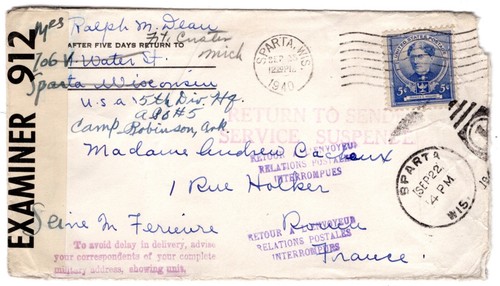 EXAMINER 912
Mrs Ralph M. Dean
AFTER FIVE DAYS RETURN TO
Ft. Custer
Mich
706 N Water St.
Sparta Wisconsin
U.S.A 5th Div. Hq.
A P O #5
Camp Robinson, Ark
SPARTA, WIS.
SEP
1940
UNITED STATES POSTAGE
5¢ 5¢
RETURN TO SENDER
SERVICE SUSPENDED
Madame Andrew
RETOUR A L'ENVOYEUR
RELATIONS POSTALES
INTERROMPUES
1 Rue Holker
SPARTA
SEP 22
4 PM
WIS.
Seine M Ferieure
Rouen
RETOUR A L'ENVOYEUR
RELATIONS POSTALES
INTERROMPUES
France.
To avoid delay in delivery, advise
your correspondents of your complete
military address, showing unit.